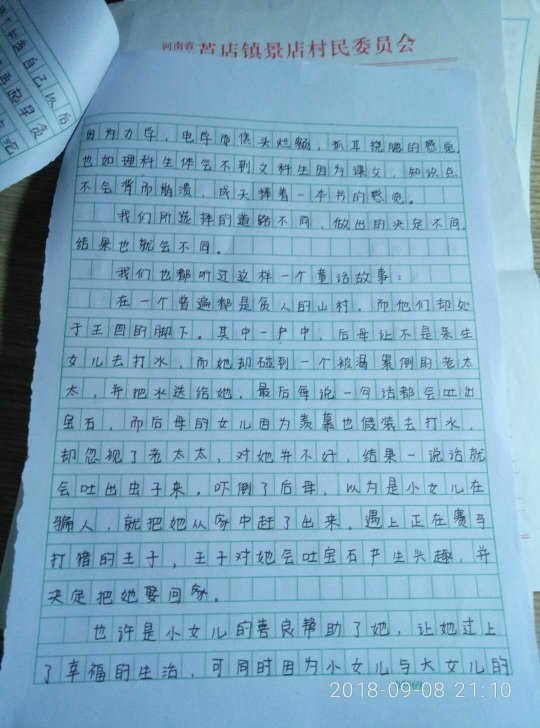 河南省芦店镇景店村民委员会
值自己以后
因为力学，电学而焦头烂额，抓耳挠腮的感觉
也如理科生体会不到文科生因为课文，知识点
不会背而崩溃，成天捧着一本书的感觉。
我们所选择的道路不同，做出的决定不同，
结果也就会不同。
我们也都听过这样一个童话故事：
在一个普遍都是贫人的山村，而他们却处
于王国的脚下。其中一户中，后母让不是亲生
女儿去打水，而她却碰到一个被渴累倒的老太
太，并把水送给她，最后每说一句话都会吐出
宝石，而后母的女儿因为羡慕也假装去打水，
却忽视了老太太，对她并不好，结果一说话就
会吐出虫子来，吓倒了后母，以为是小女儿在
骗人，就把她从家中赶了出来，遇上正在赛马
打猎的王子，王子对她会吐宝石产生兴趣，并
决定把她娶回家。
也许是小女儿的善良帮助了她，让她过上
了幸福的生活，可同时因为小女儿与大女儿的
2018-09-08 21:10